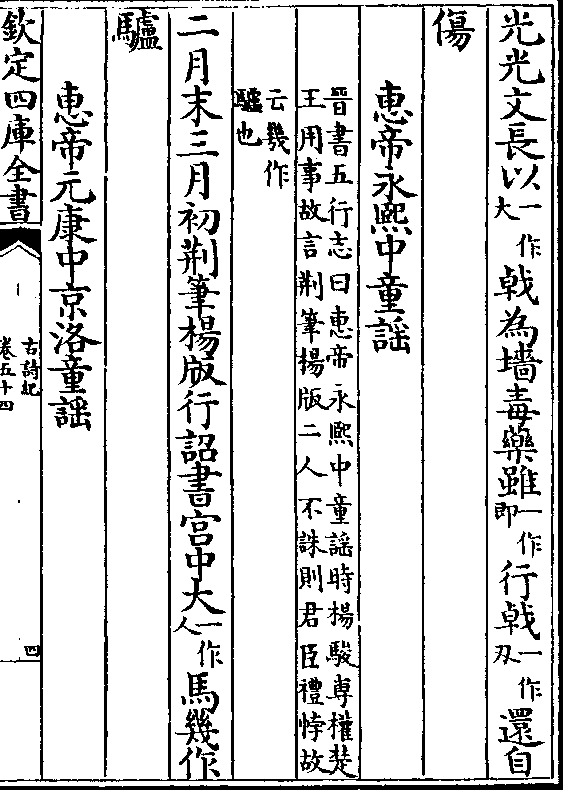 光光文長以一作大戟為墻毒藥雖一作即行戟一作刃還自
傷
惠帝永熙中童謡
晉書五行志曰惠帝永熙中童謡時楊駿専權楚
王用事故言荆筆楊版二人不誅則君臣禮悖故
云幾作
驢也
二月末三月初荆筆楊版行詔書宫中大一作人馬幾作
驢
惠帝元康中京洛童謡
欽定四庫全書
古詩紀
卷五十四
四